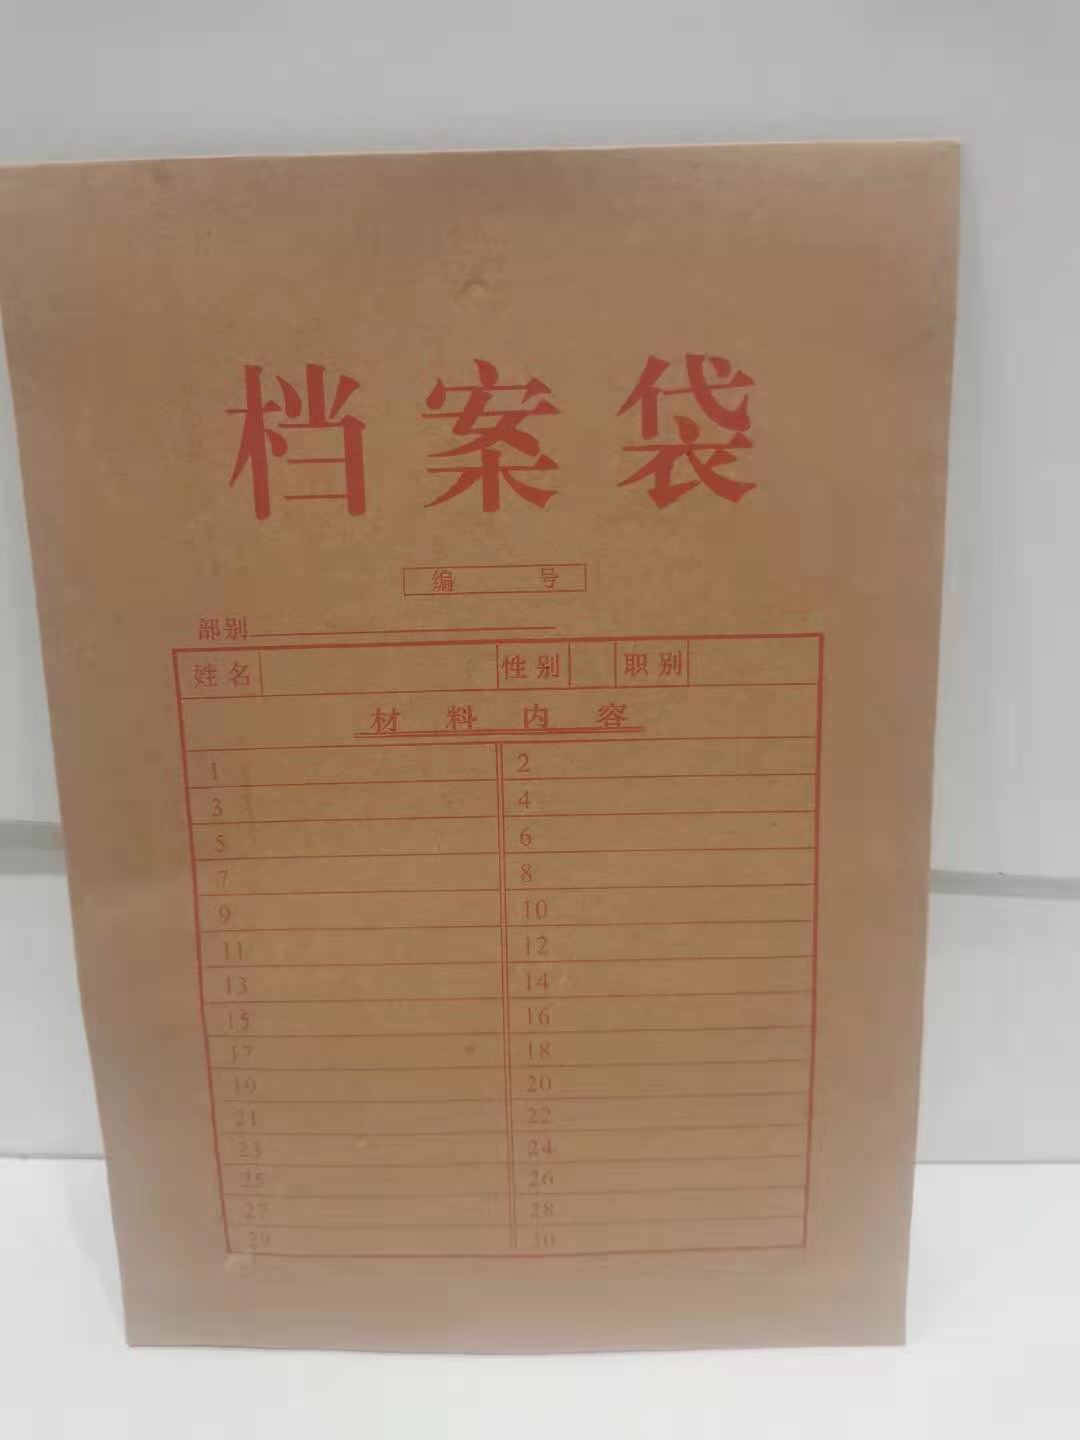 档案袋
编 号
部别
姓名 性别 职别
材料内容
1 2
3 4
5 6
7 8
9 10
11 12
13 14
15 16
17 18
19 20
21 22
23 24
25 26
27 28
29 30